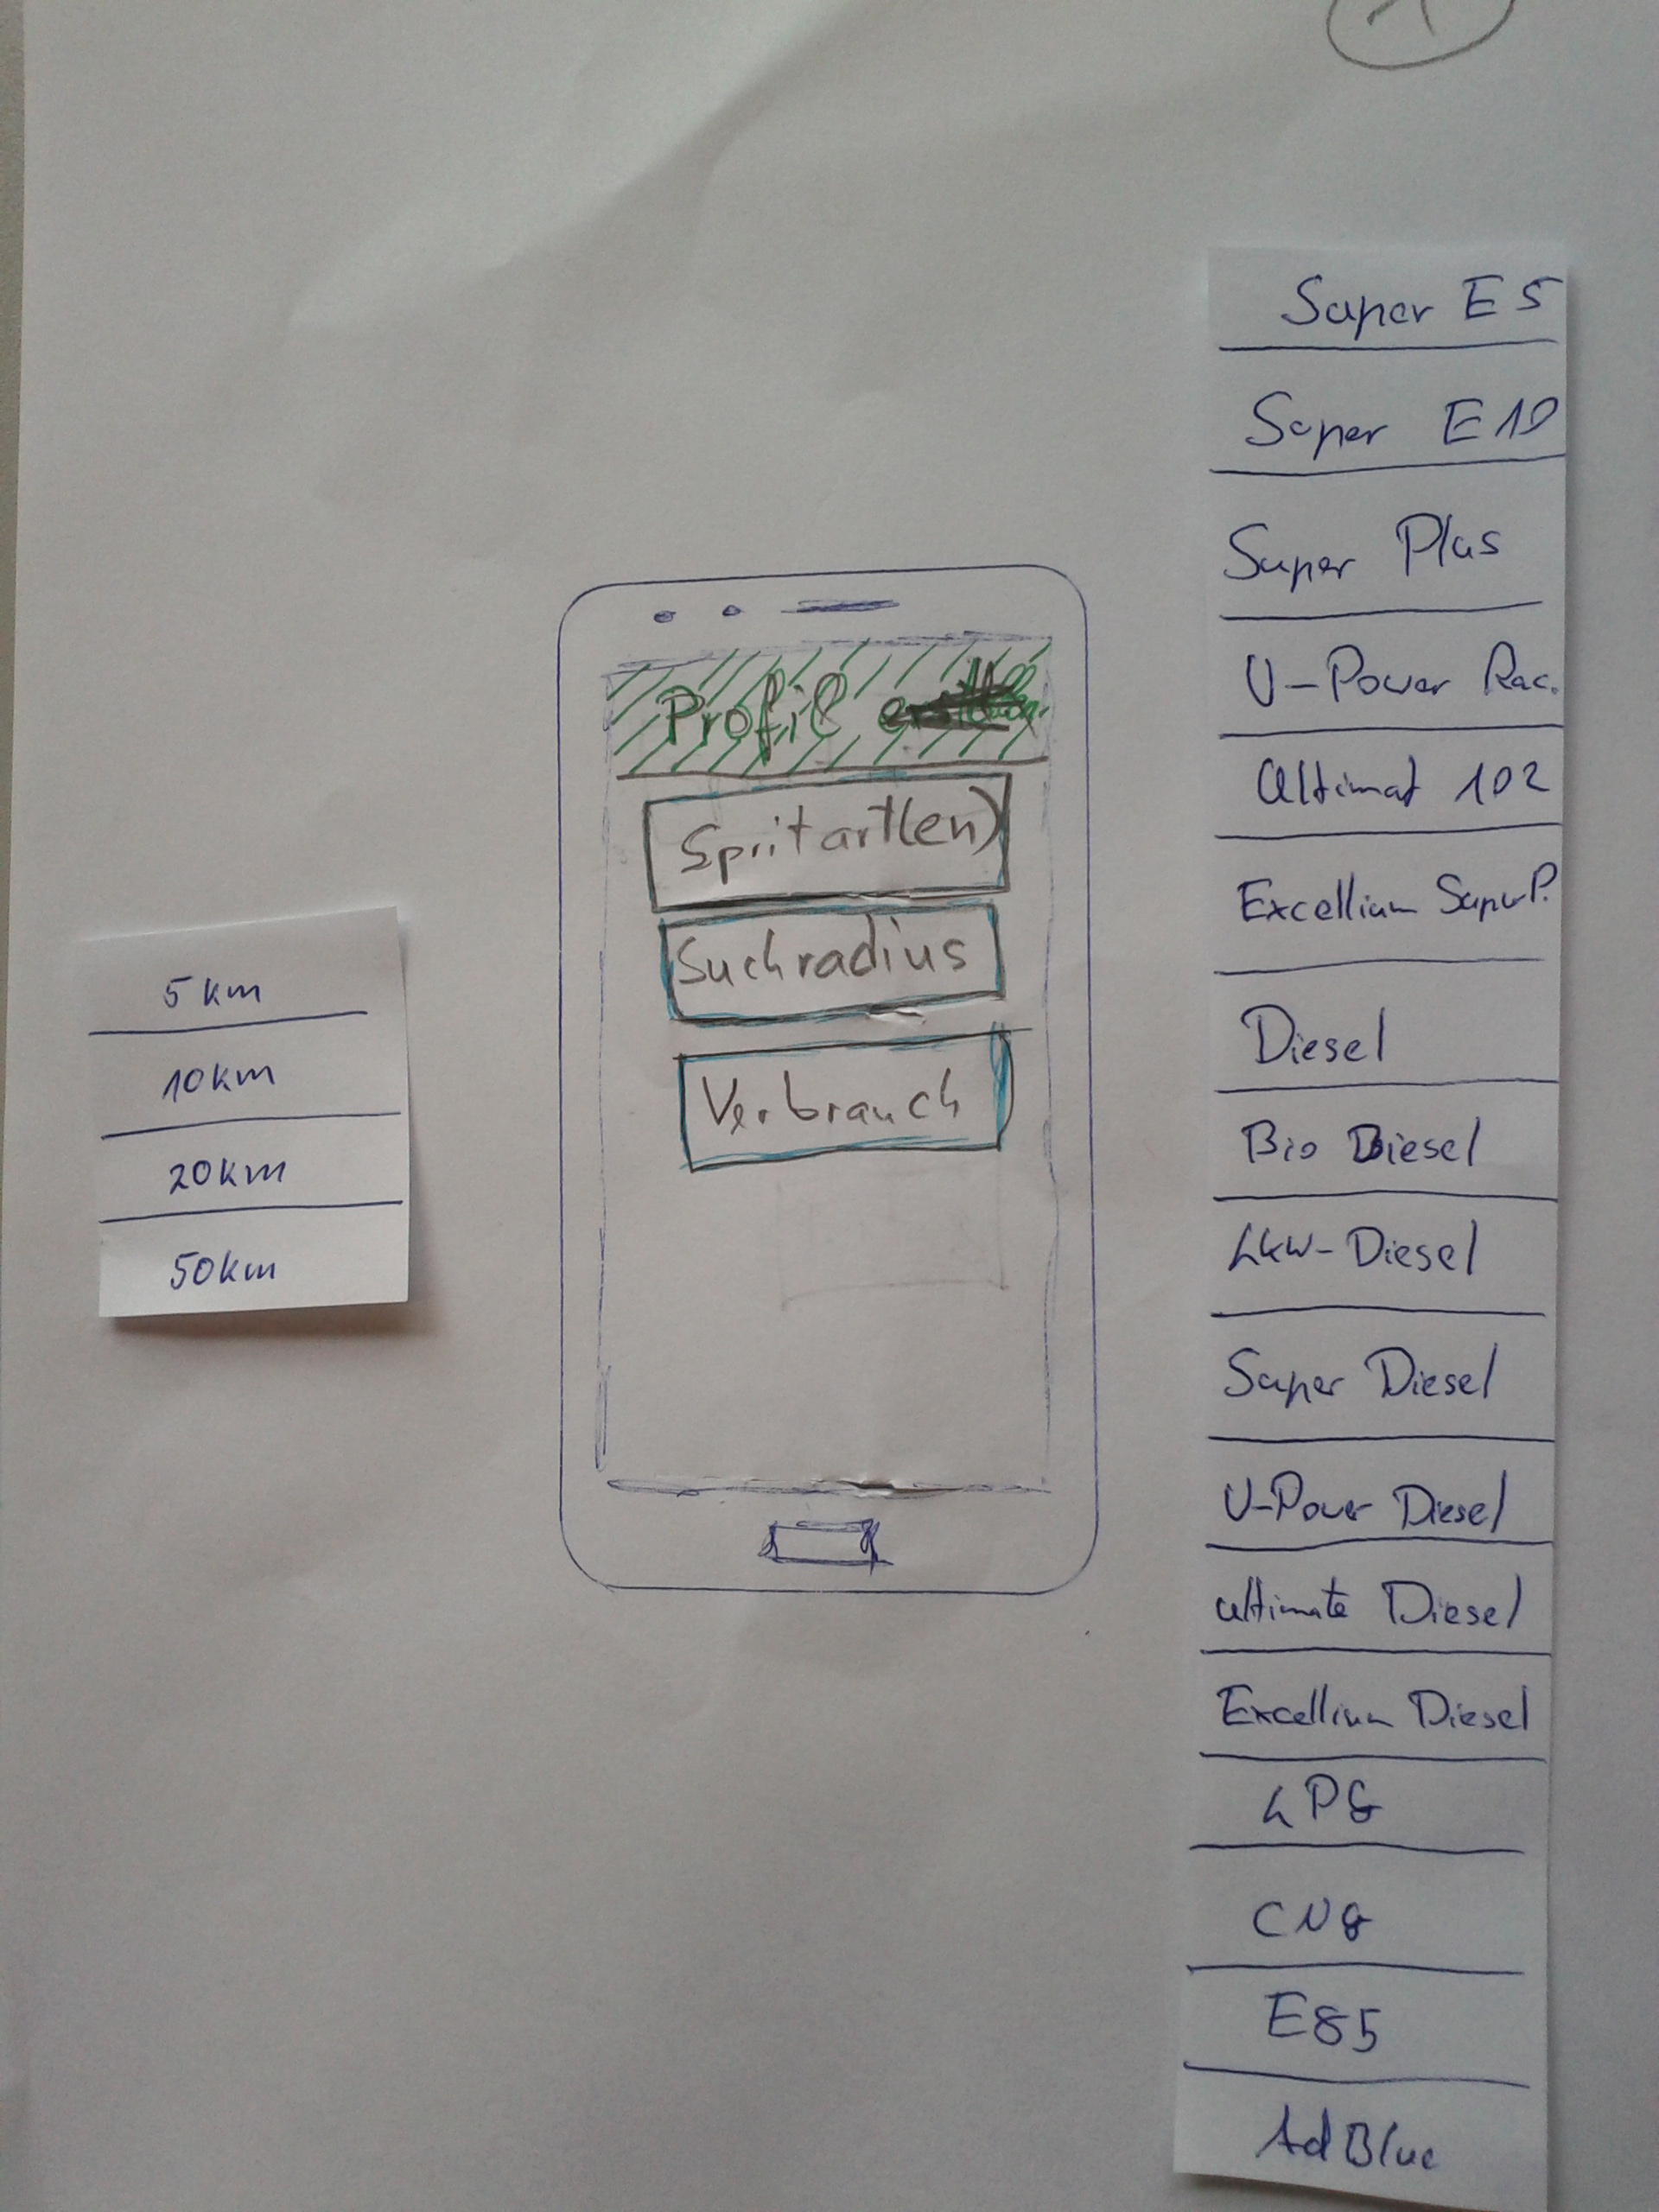 Profil
Spritart(en)
Suchradius
Verbrauch
5 km
10 km
20 km
50 km
Super E5
Super E10
Super Plus
V-Power Rac.
Ultimat 102
Excellium SuperP.
Diesel
Bio Diesel
LKW-Diesel
Super Diesel
V-Power Diesel
ultimate Diesel
Excellium Diesel
LPG
CNG
E85
AdBlue